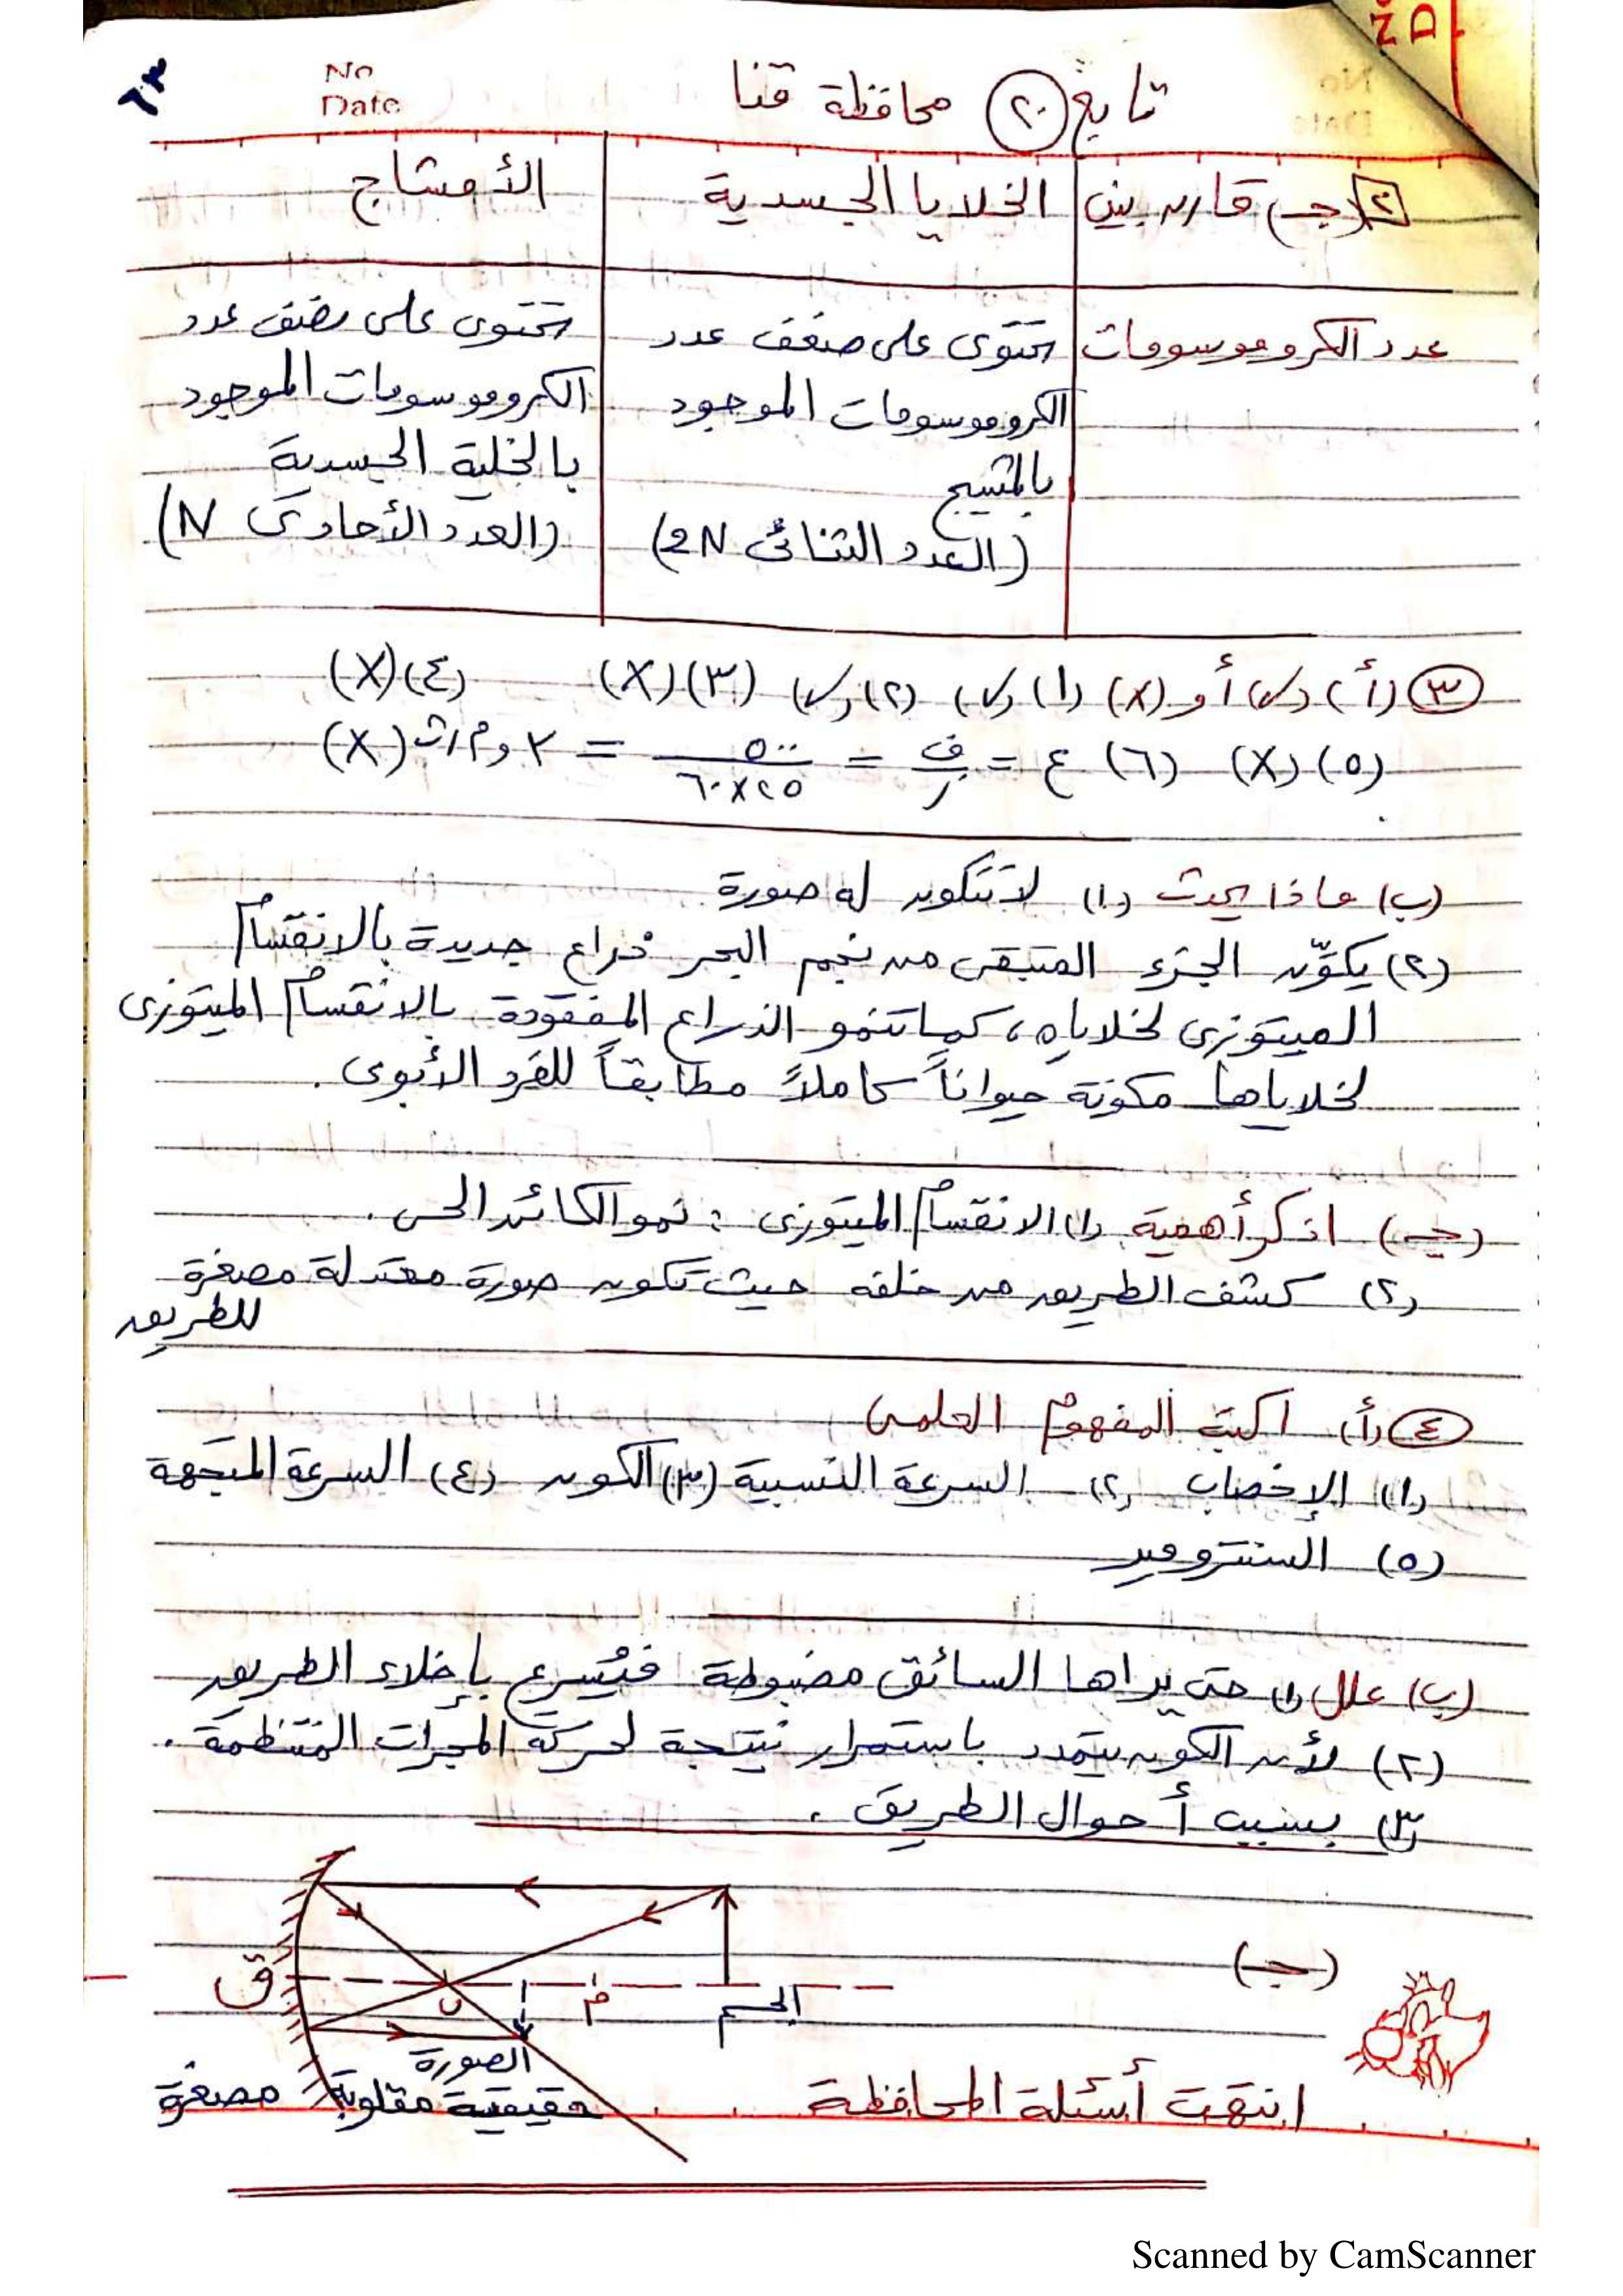 ٦٣
No
Date
تابع (٢٠) محافظة قنا
٢ (جـ) قارن بين | الخلايا الجسدية | الأمشاج
عدد الكروموسومات | تحتوى على ضعف عدد | تحتوى على نصف عدد
الكروموسومات الموجود | الكروموسومات الموجود
بالمشيج | بالخلية الجسدية
(العدد الثنائى 2N) | (العدد الأحادى N)
٣ (أ) (✓) أو (X) (١) (✓) (٢) (✓) (٣) (X) (٤) (X)
(٥) (X) (٦) ع = ف/ز = ٥٠٠/٦٠×٢٥ = ٢ و م/ث (X)
(ب) ماذا يحدث (١) لا تتكون له صورة
(٢) يكوّن الجزء المتبقى من نجم البحر ذراع جديدة بالانقسام
الميتوزى لخلاياه، كما تنمو الذراع المفقودة بالانقسام الميتوزى
لخلاياها مكونة حيواناً كاملاً مطابقاً للفرد الأبوى.
(جـ) اذكر أهمية (١) الانقسام الميتوزى : نمو الكائن الحى.
(٢) كشف الطريق من خلفه حيث تكون صورة معتدلة مصغرة
للطريق
٤ (أ) اكتب المفهوم العلمى
(١) الإخصاب (٢) السرعة النسبية (٣) الكون (٤) السرعة المتجهة
(٥) السنترومير
(ب) علل (١) حتى يراها السائق مضبوطة فيُسرع بإخلاء الطريق
(٢) لأن الكون يتمدد باستمرار نتيجة لحركة المجرات المنتظمة.
(٣) بسبب أحوال الطريق.
(جـ)
ق
ن
م
الجسم
الصورة
حقيقية مقلوبة مصغرة
انتهت أسئلة المحافظة
Scanned by CamScanner